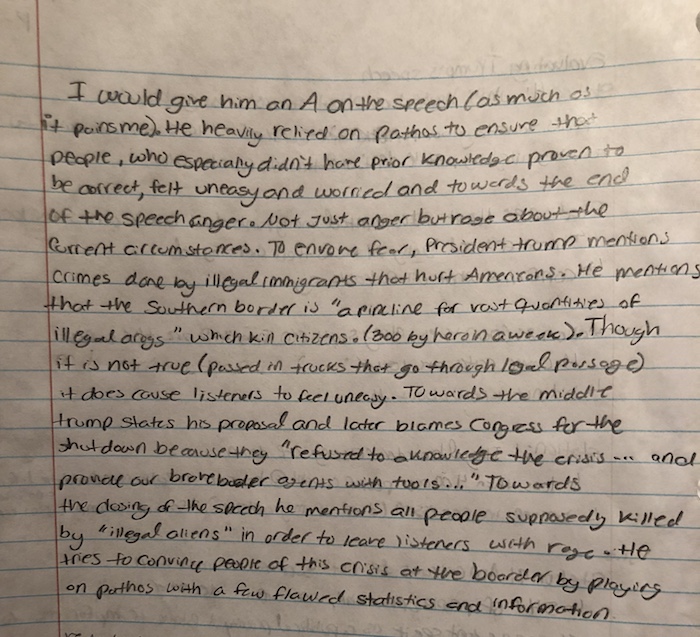 I would give him an A on the speech (as much as
it pains me). He heavily relied on Pathos to ensure that
people, who especially didn't have prior knowledge proven to
be correct, felt uneasy and worried and towards the end
of the speech anger. Not Just anger but rage about the
Current circumstances. To envoke fear, President trump mentions
Crimes done by illegal immigrants that hurt Americans. He mentions
that the Southern border is "a pipeline for vast quantities of
illegal drugs" which kill citizens. (300 by heroin a week). Though
it is not true (passed in trucks that go through legal passage)
it does cause listeners to feel uneasy. Towards the middle
trump states his proposal and later blames Congress for the
shutdown because they "refused to aknowledge the crisis ... and
provide our brave border agents with tools..." Towards
the closing of the speech he mentions all people supposedly killed
by "illegal aliens" in order to leave listeners with rage. He
tries to convince people of this crisis at the boarder by playing
on pathos with a few flawed statistics and information